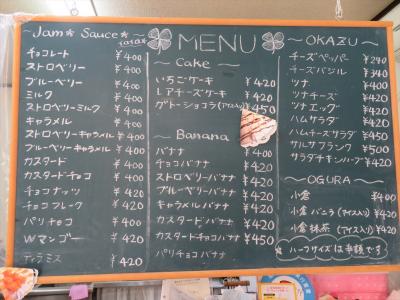 ~Jam☆Sauce☆~
チョコレート ¥400
ストロベリー ¥400
ブルーベリー ¥400
ミルク ¥400
ストロベリーミルク ¥400
キャラメル ¥400
ストロベリーキャラメル ¥400
ブルーベリーキャラメル ¥400
カスタード ¥400
カスタードチョコ ¥400
チョコナッツ ¥420
チョコフレーク ¥420
パリチョコ ¥400
Wマンゴー ¥420
ティラミス ¥420
MENU
~Cake~
いちごケーキ ¥420
レアチーズケーキ ¥420
ガトーショコラ(アイス入り) ¥450
~Banana~
バナナ ¥400
チョコバナナ ¥420
ストロベリーバナナ ¥420
ブルーベリーバナナ ¥420
キャラメルバナナ ¥420
カスタードバナナ ¥420
カスタードチョコバナナ ¥450
パリチョコバナナ ¥420
~OKAZU~
チーズペッパー ¥290
チーズバジル ¥340
ツナ ¥420
ツナチーズ ¥420
ツナエッグ ¥420
ハムサラダ ¥420
ハムチーズサラダ ¥450
サルサフランク ¥500
サラダチキンハーブ ¥420
~OGURA~
小倉 ¥400
小倉バニラ(アイス入り) ¥420
小倉抹茶(アイス入り) ¥420
☆ハーフサイズは半額です